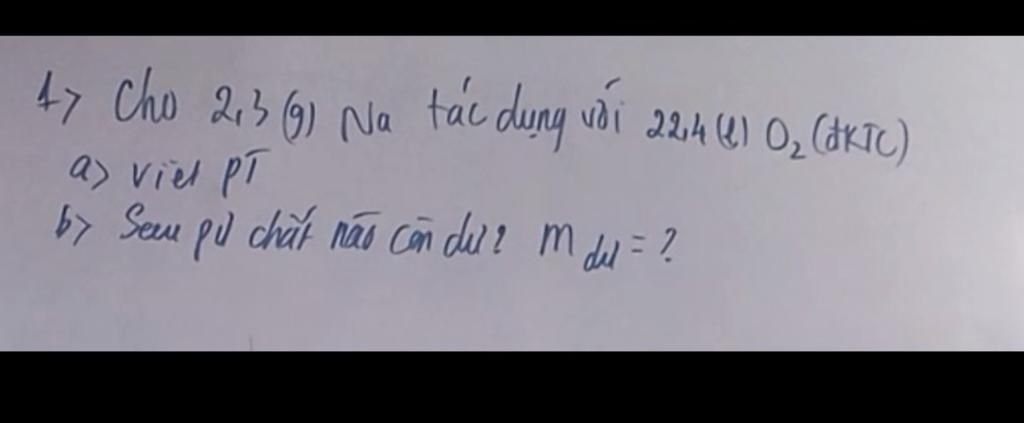 1> Cho 2,3 (g) Na tác dụng với 22,4 (l) O₂ (đKTC)
a> viết PT
b> Sau pứ chất nào còn dư? m dư = ?